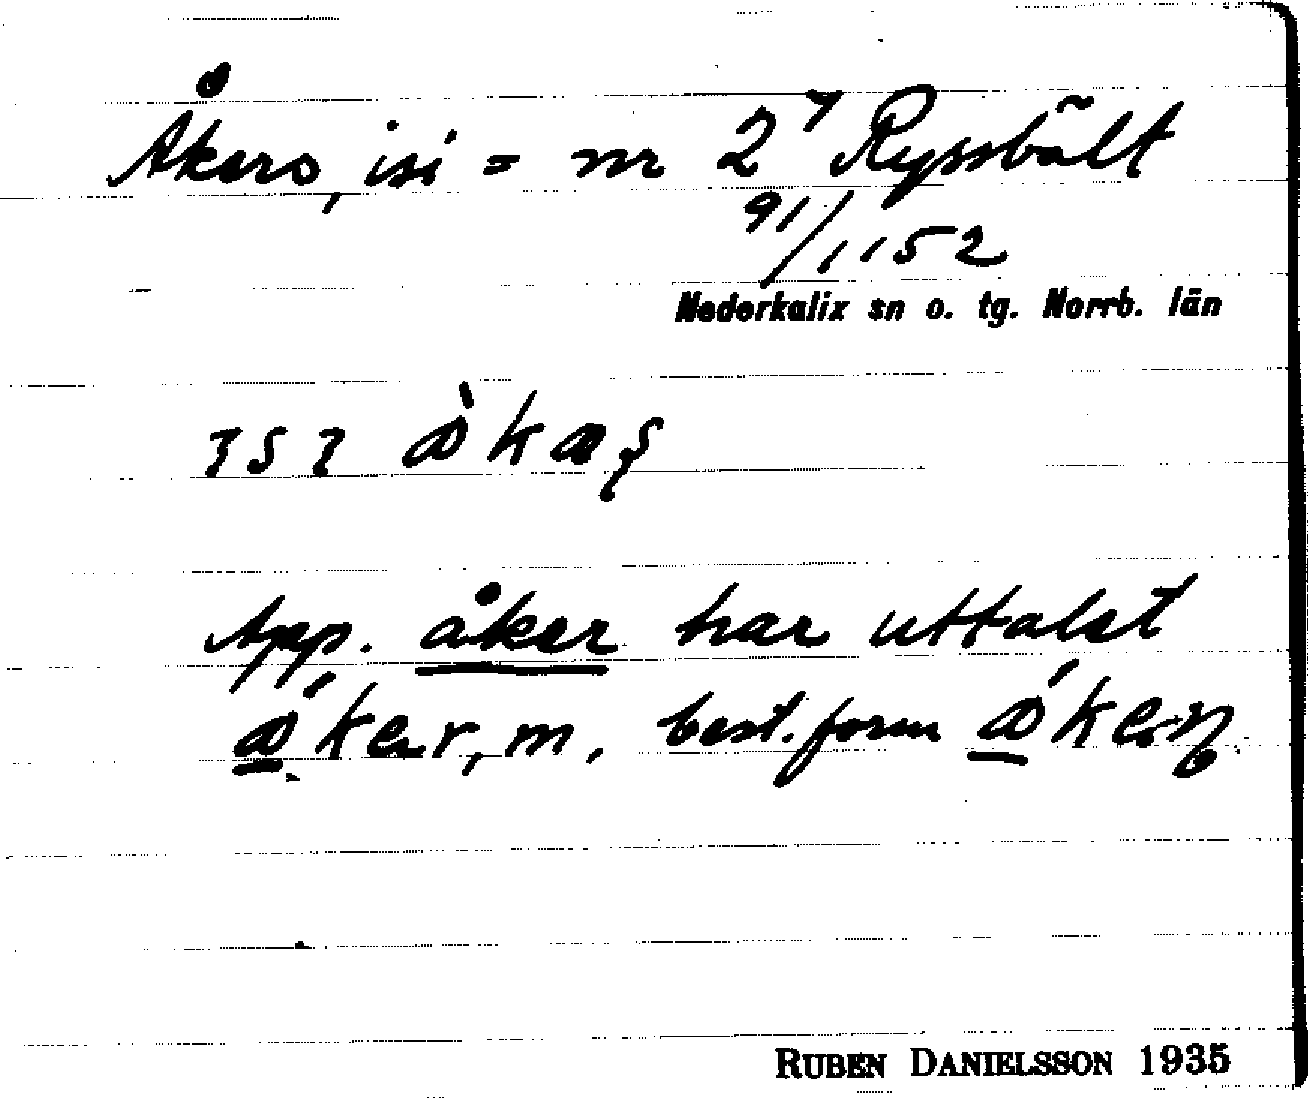 Åkers, isi = nr 2⁷ Ryssbält
91/1152
Nederkalix sn o. tg. Norrb. län
App. åker har uttalet
m, best. form
RUBEN DANIELSSON 1935